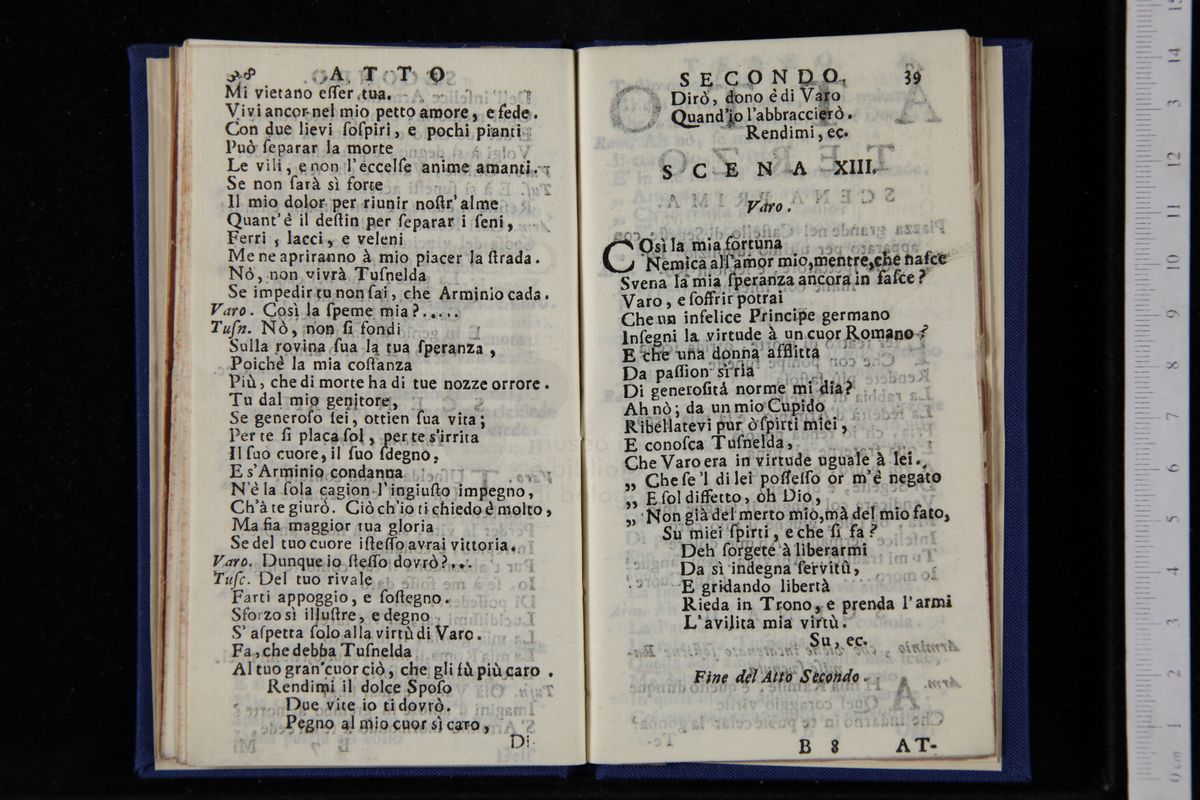 38 ATTO
Mi vietano eſſer tua.
Vivi ancor nel mio petto amore, e fede.
Con due lievi ſoſpiri, e pochi pianti
Può ſeparar la morte
Le vili, e non l'eccelſe anime amanti.
Se non ſarà sì forte
Il mio dolor per riunir noſtr'alme
Quant'è il deſtin per ſeparar i ſeni,
Ferri, lacci, e veleni
Me ne apriranno à mio piacer la ſtrada.
Nò, non vivrà Tuſnelda
Se impedir tu non ſai, che Arminio cada.
Varo. Così la ſpeme mia?.....
Tuſn. Nò, non ſi fondi
Sulla rovina ſua la tua ſperanza,
Poichè la mia coſtanza
Più, che di morte ha di tue nozze orrore.
Tu dal mio genitore,
Se generoſo ſei, ottien ſua vita;
Per te ſi placa ſol, per te s'irrita
Il ſuo cuore, il ſuo ſdegno,
E s'Arminio condanna
N'è la ſola cagion l'ingiuſto impegno,
Ch'à te giurò. Ciò ch'io ti chiedo è molto,
Ma fia maggior tua gloria
Se del tuo cuore iſteſſo avrai vittoria.
Varo. Dunque io ſteſſo dovrò?...
Tuſc. Del tuo rivale
Farti appoggio, e ſoſtegno.
Sforzo sì illuſtre, e degno
S' aſpetta ſolo alla virtù di Varo.
Fa, che debba Tuſnelda
Al tuo gran'cuor ciò, che gli ſù più caro.
Rendimi il dolce Spoſo
Due vite io ti dovrò.
Pegno al mio cuor sì caro,
Di-
SECONDO. 39
Dirò, dono è di Varo
Quand'io l'abbraccierò.
Rendimi, ec.
SCENA XIII.
Varo.
COsì la mia fortuna
Nemica all'amor mio, mentre, che naſce
Svena la mia ſperanza ancora in faſce?
Varo, e ſoffrir potrai
Che un infelice Principe germano
Inſegni la virtude à un cuor Romano?
E che una donna afflitta
Da paſſion sì ria
Di generoſità norme mi dia?
Ah nò; da un mio Cupido
Ribellatevi pur ò ſpirti miei,
E conoſca Tuſnelda,
Che Varo era in virtude uguale à lei.
„ Che ſe 'l di lei poſſeſſo or m'è negato
„ E ſol diffetto, oh Dio,
„ Non già del merto mio, mà del mio fato,
Su miei ſpirti, e che ſi fa?
Deh ſorgete à liberarmi
Da sì indegna ſervitù,
E gridando libertà
Rieda in Trono, e prenda l'armi
L'avilita mia virtù.
Su, ec.
Fine del Atto Secondo.
B 8 AT-